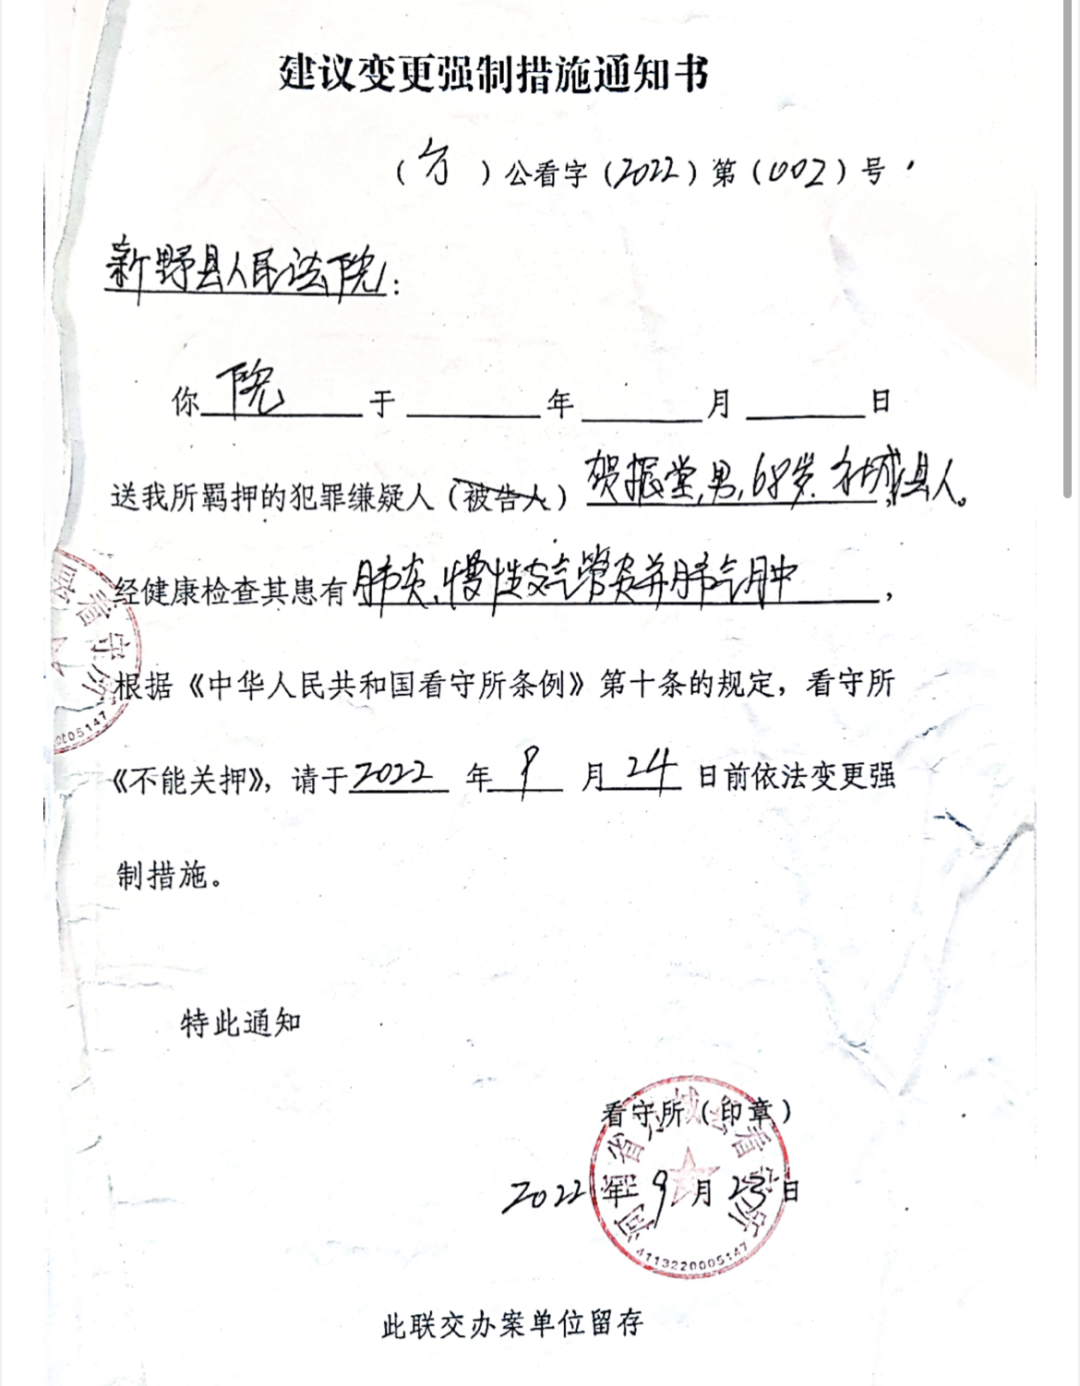 建议变更强制措施通知书
（方）公看字（2022）第（002）号
新野县人民法院：
你院于 年 月 日
送我所羁押的犯罪嫌疑人（被告人）贺振堂，男，68岁，社城县人。
经健康检查其患有肺炎、慢性支气管炎并肺气肿，
根据《中华人民共和国看守所条例》第十条的规定，看守所
《不能关押》，请于2022年9月24日前依法变更强
制措施。
看守所
0005147
特此通知
看守所（印章）
河南省 城县看守所
2022年9月23日
4113220005147
此联交办案单位留存